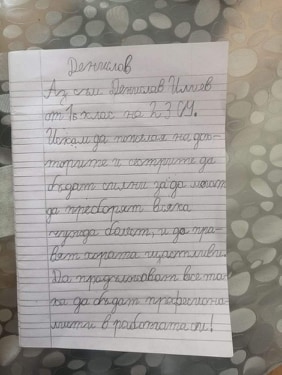 Денислав
Аз съм Денислав Илиев
от 1в клас на 23 СУ.
Искам да пожелая на док-
торите и сестрите да
бъдат силни за да могат
да преборят всяка
болест, и да пра-
вят хората щастливи.
Да продължават все та
ка да бъдат професиона-
листи в работата си!